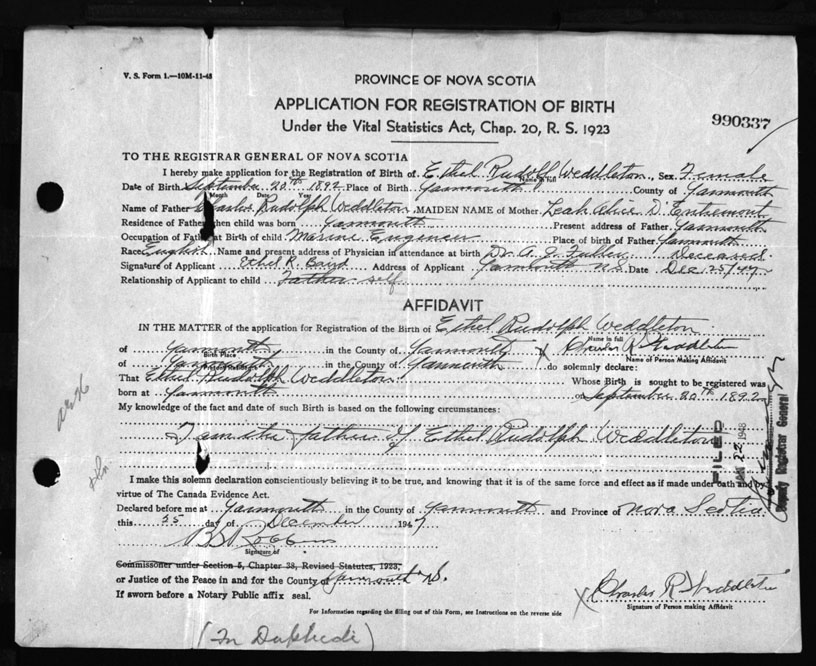 V. S. Form 1.—10M-11-45
PROVINCE OF NOVA SCOTIA
APPLICATION FOR REGISTRATION OF BIRTH
Under the Vital Statistics Act, Chap. 20, R. S. 1923
990337
TO THE REGISTRAR GENERAL OF NOVA SCOTIA
I hereby make application for the Registration of Birth of Ethel Rudolf Weddleton, Sex Female
Name in full
Date of Birth September 20th 1892 Place of Birth Yarmouth County of Yarmouth
Month Day Year
Name of Father Charles Rudolph Weddleton, MAIDEN NAME of Mother Leah Alice D'Entremont
Residence of Father when child was born Yarmouth Present address of Father Yarmouth
Occupation of Father at Birth of child Marine Engineer Place of birth of Father Yarmouth
Race English Name and present address of Physician in attendance at birth Dr. A. J. Fuller Deceased
Signature of Applicant Ethel R. Baird Address of Applicant Yarmouth N.S. Date Dec 25/47
Relationship of Applicant to child Father self
AFFIDAVIT
IN THE MATTER of the application for Registration of the Birth of Ethel Rudolph Weddleton
Name in full
of Yarmouth in the County of Yarmouth X Charles R Weddleton
Birth Place Name of Person Making Affidavit
of Yarmouth in the County of Yarmouth do solemnly declare:
That Ethel Rudolph Weddleton Whose Birth is sought to be registered was
born at Yarmouth on September 20th 1892
My knowledge of the fact and date of such Birth is based on the following circumstances:
I am the father of Ethel Rudolph Weddleton
FILED
JAN 22 1948
Deputy Registrar General
I make this solemn declaration conscientiously believing it to be true, and knowing that it is of the same force and effect as if made under oath and by
virtue of The Canada Evidence Act.
Declared before me at Yarmouth in the County of Yarmouth and Province of Nova Scotia
this day of December 1947
Signature of
Commissoner under Section 5, Chapter 38, Revised Statutes, 1923,
or Justice of the Peace in and for the County of Yarmouth N.S.
If sworn before a Notary Public affix seal.
X Charles R Weddleton
Signature of Person making Affidavit
For Information regarding the filling out of this Form, see Instructions on the reverse side